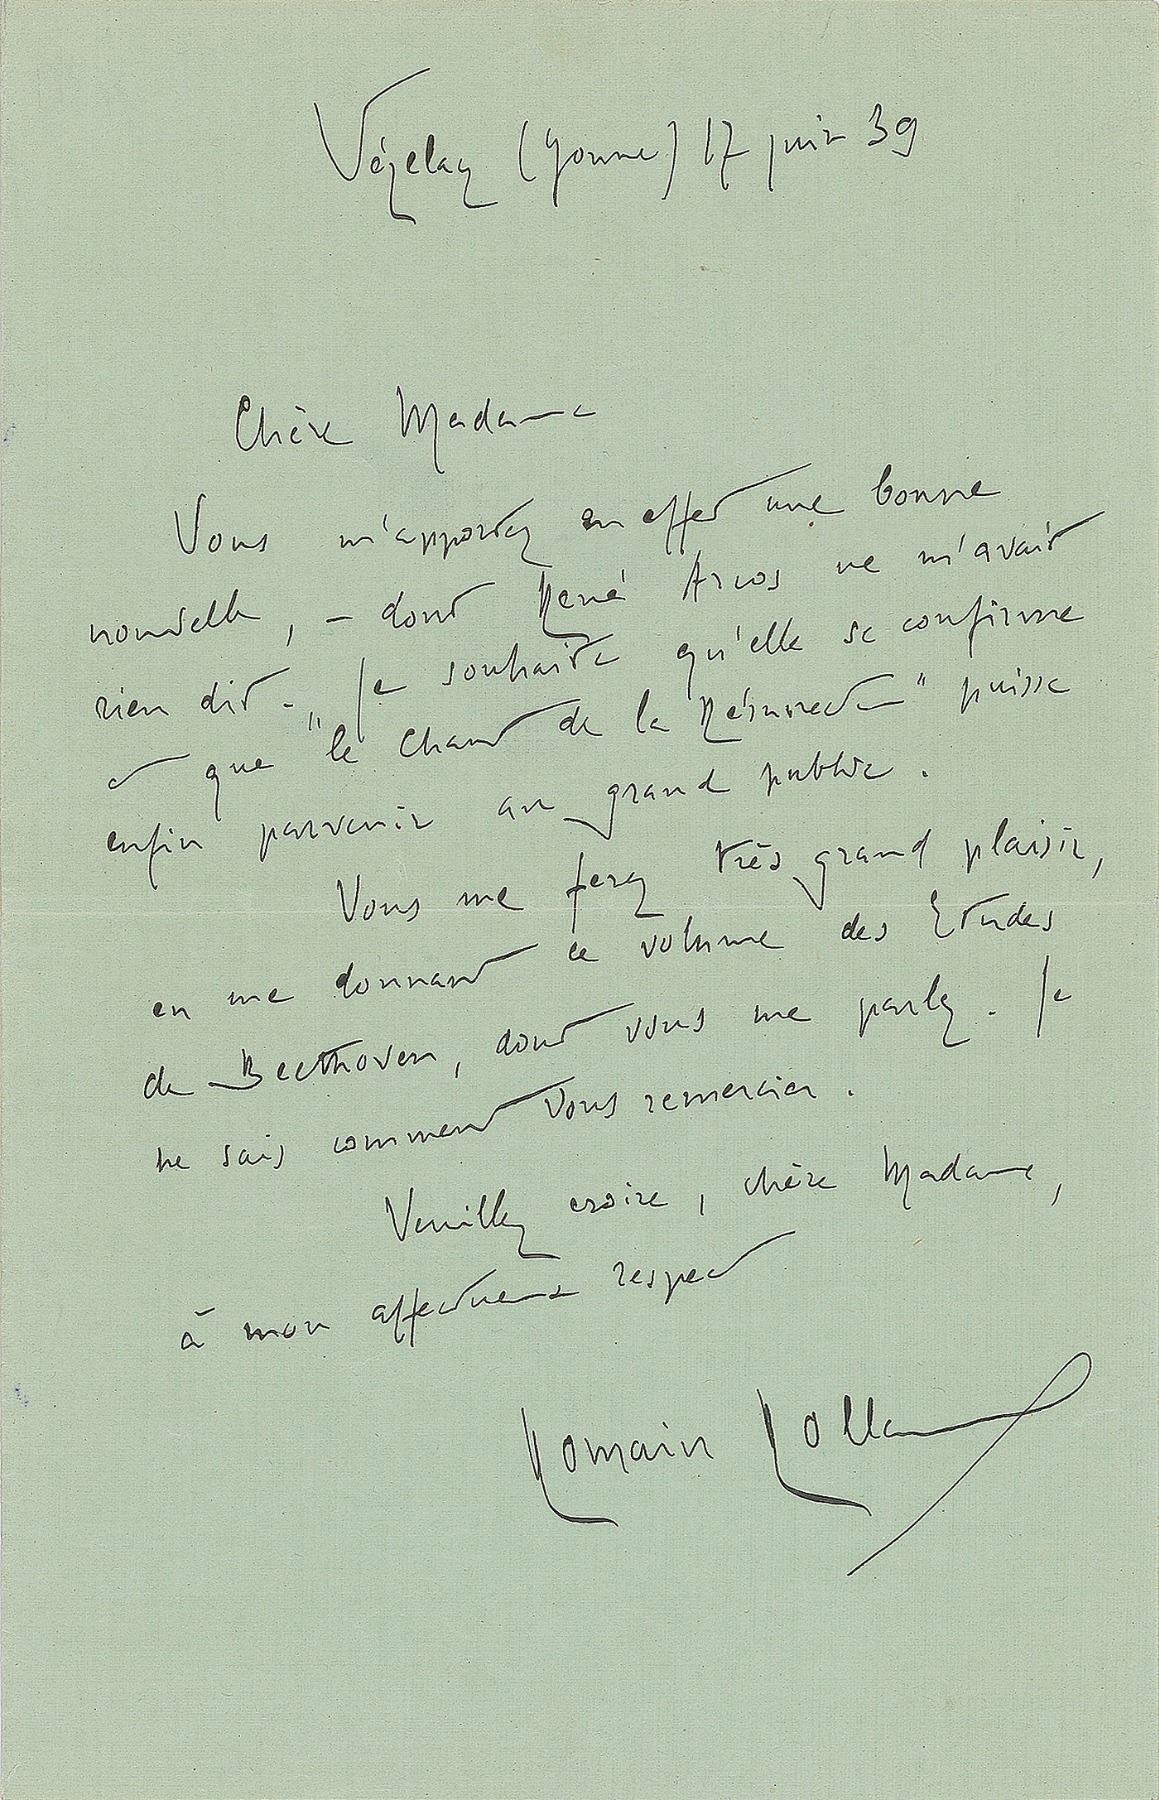 Vézelay (Yonne) 17 juin 39
Chère Madame
Vous m'apportez en effet une bonne
nouvelle, – dont René Arcos ne m'avait
rien dit. Je souhaite qu'elle se confirme
et que "le Chant de la Résurrection" puisse
enfin parvenir au grand public.
Vous me ferez très grand plaisir,
en me donnant ce volume des Etudes
de Beethoven, dont vous me parlez. Je
ne sais comment vous remercier.
Veuillez croire, chère Madame,
à mon affectueux respect
Romain Rolland